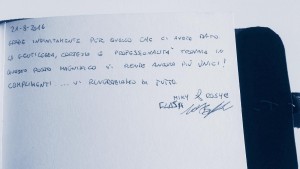 21-8-2016
GRAZIE INFINITAMENTE PER QUELLO CHE CI AVETE DATO.
LA GENTILEZZA, CORTESIA E PROFESSIONALITÀ TROVATA IN
QUESTO POSTO MAGNIFICO VI RENDE ANCORA PIÙ UNICI!
COMPLIMENTI ... VI RINGRAZIAMO DI TUTTO